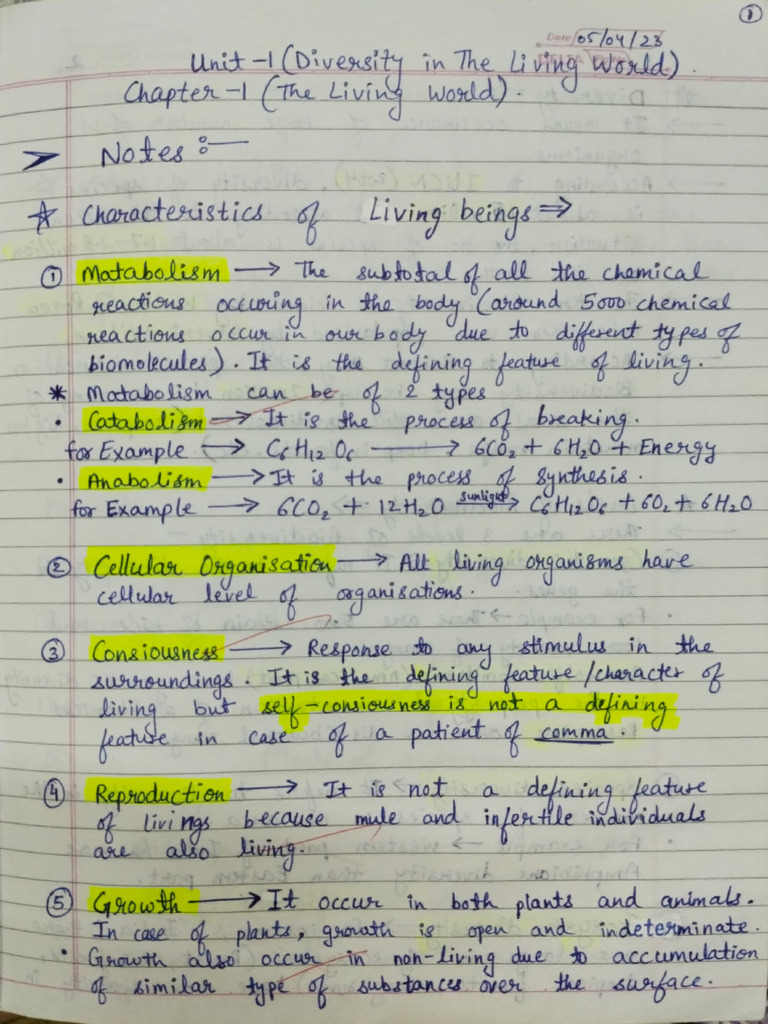 1
Date 05/04/23
Unit-1 (Diversity in The Living World).
Chapter-1 (The Living World).
➤ Notes :—
☆ Characteristics of Living beings ⇒
① Matabolism → The subtotal of all the chemical
reactions occuring in the body (around 5000 chemical
reactions occur in our body due to different types of
biomolecules). It is the defining feature of living.
* Matabolism can be of 2 types
• Catabolism → It is the process of breaking.
for Example → C₆H₁₂O₆ → 6CO₂ + 6H₂O + Energy
• Anabolism → It is the process of synthesis.
for Example → 6CO₂ + 12H₂O sunlight→ C₆H₁₂O₆ + 6O₂ + 6H₂O
② Cellular Organisation → All living organisms have
cellular level of organisations.
③ Consiousness → Response to any stimulus in the
surroundings. It is the defining feature/character of
living but self-consiousness is not a defining
feature in case of a patient of comma.
④ Reproduction → It is not a defining feature
of livings because mule and infertile individuals
are also living.
⑤ Growth → It occur in both plants and animals.
In case of plants, growth is open and indeterminate.
• Growth also occur in non-living due to accumulation
of similar type of substances over the surface.